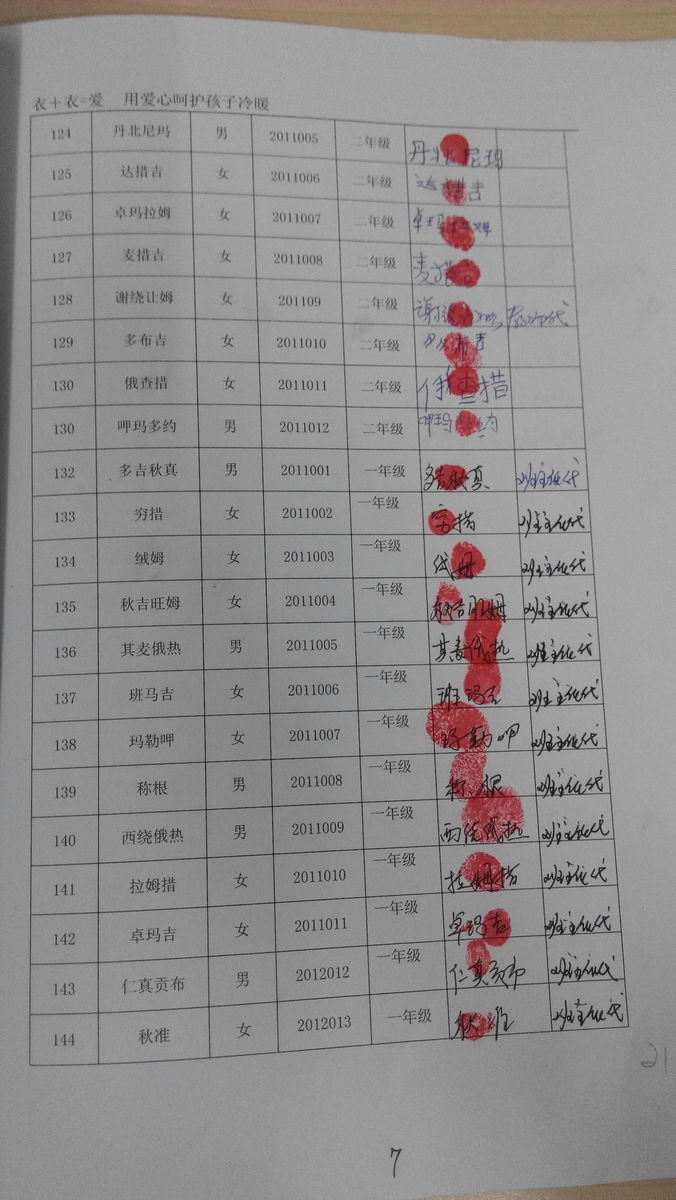 衣+衣=爱 用爱心呵护孩子冷暖
124 丹北尼玛 男 2011005 二年级 丹北尼玛
125 达措吉 女 2011006 二年级 达措吉
126 卓玛拉姆 女 2011007 二年级 卓玛拉姆
127 麦措吉 女 2011008 二年级 麦措吉
128 谢绕让姆 女 201109 二年级
129 多布吉 女 2011010 二年级 多布吉
130 俄查措 女 2011011 二年级 俄查措
130 呷玛多约 男 2011012 二年级 呷玛多约
132 多吉秋真 男 2011001 一年级 多吉秋真 班主任代
133 穷措 女 2011002 一年级 穷措 班主任代
134 绒姆 女 2011003 一年级 绒姆 班主任代
135 秋吉旺姆 女 2011004 一年级 秋吉旺姆 班主任代
136 其麦俄热 男 2011005 一年级 其麦俄热 班主任代
137 班马吉 女 2011006 一年级 班玛吉 班主任代
138 玛勒呷 女 2011007 一年级 玛勒呷 班主任代
139 称根 男 2011008 一年级 称根 班主任代
140 西绕俄热 男 2011009 一年级 西绕俄热 班主任代
141 拉姆措 女 2011010 一年级 拉姆措 班主任代
142 卓玛吉 女 2011011 一年级 卓玛吉 班主任代
143 仁真贡布 男 2012012 一年级 仁真贡布 班主任代
144 秋准 女 2012013 一年级 秋准 班主任代
21
7